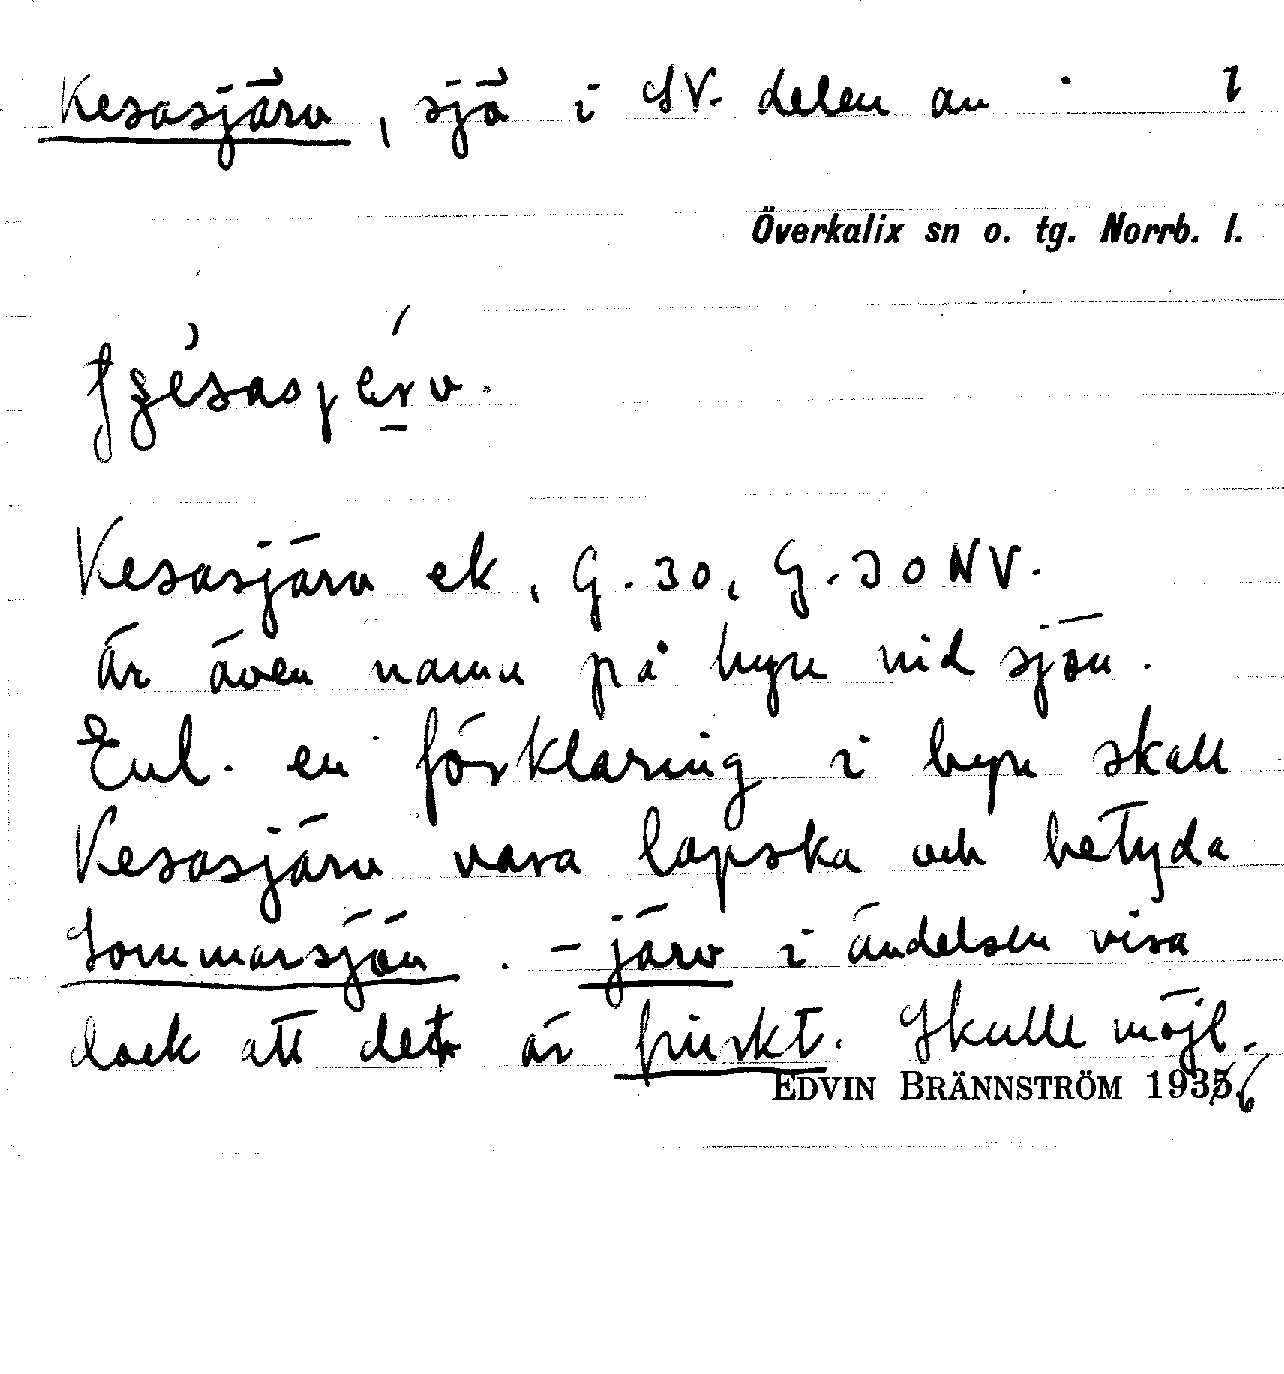 Kesasjärv, sjö i SV. delen av 1
Överkalix sn o. tg. Norrb. l.
Kesasjärv ek, G. 30, G. 30 NV.
är även namn på byn vid sjön.
Enl. en förklaring i byn skall
Kesasjärv vara lapska och betyda
Sommarsjön. -järv i ändelsen visa
dock att det är finskt. Skulle möjl.
EDVIN BRÄNNSTRÖM 1936